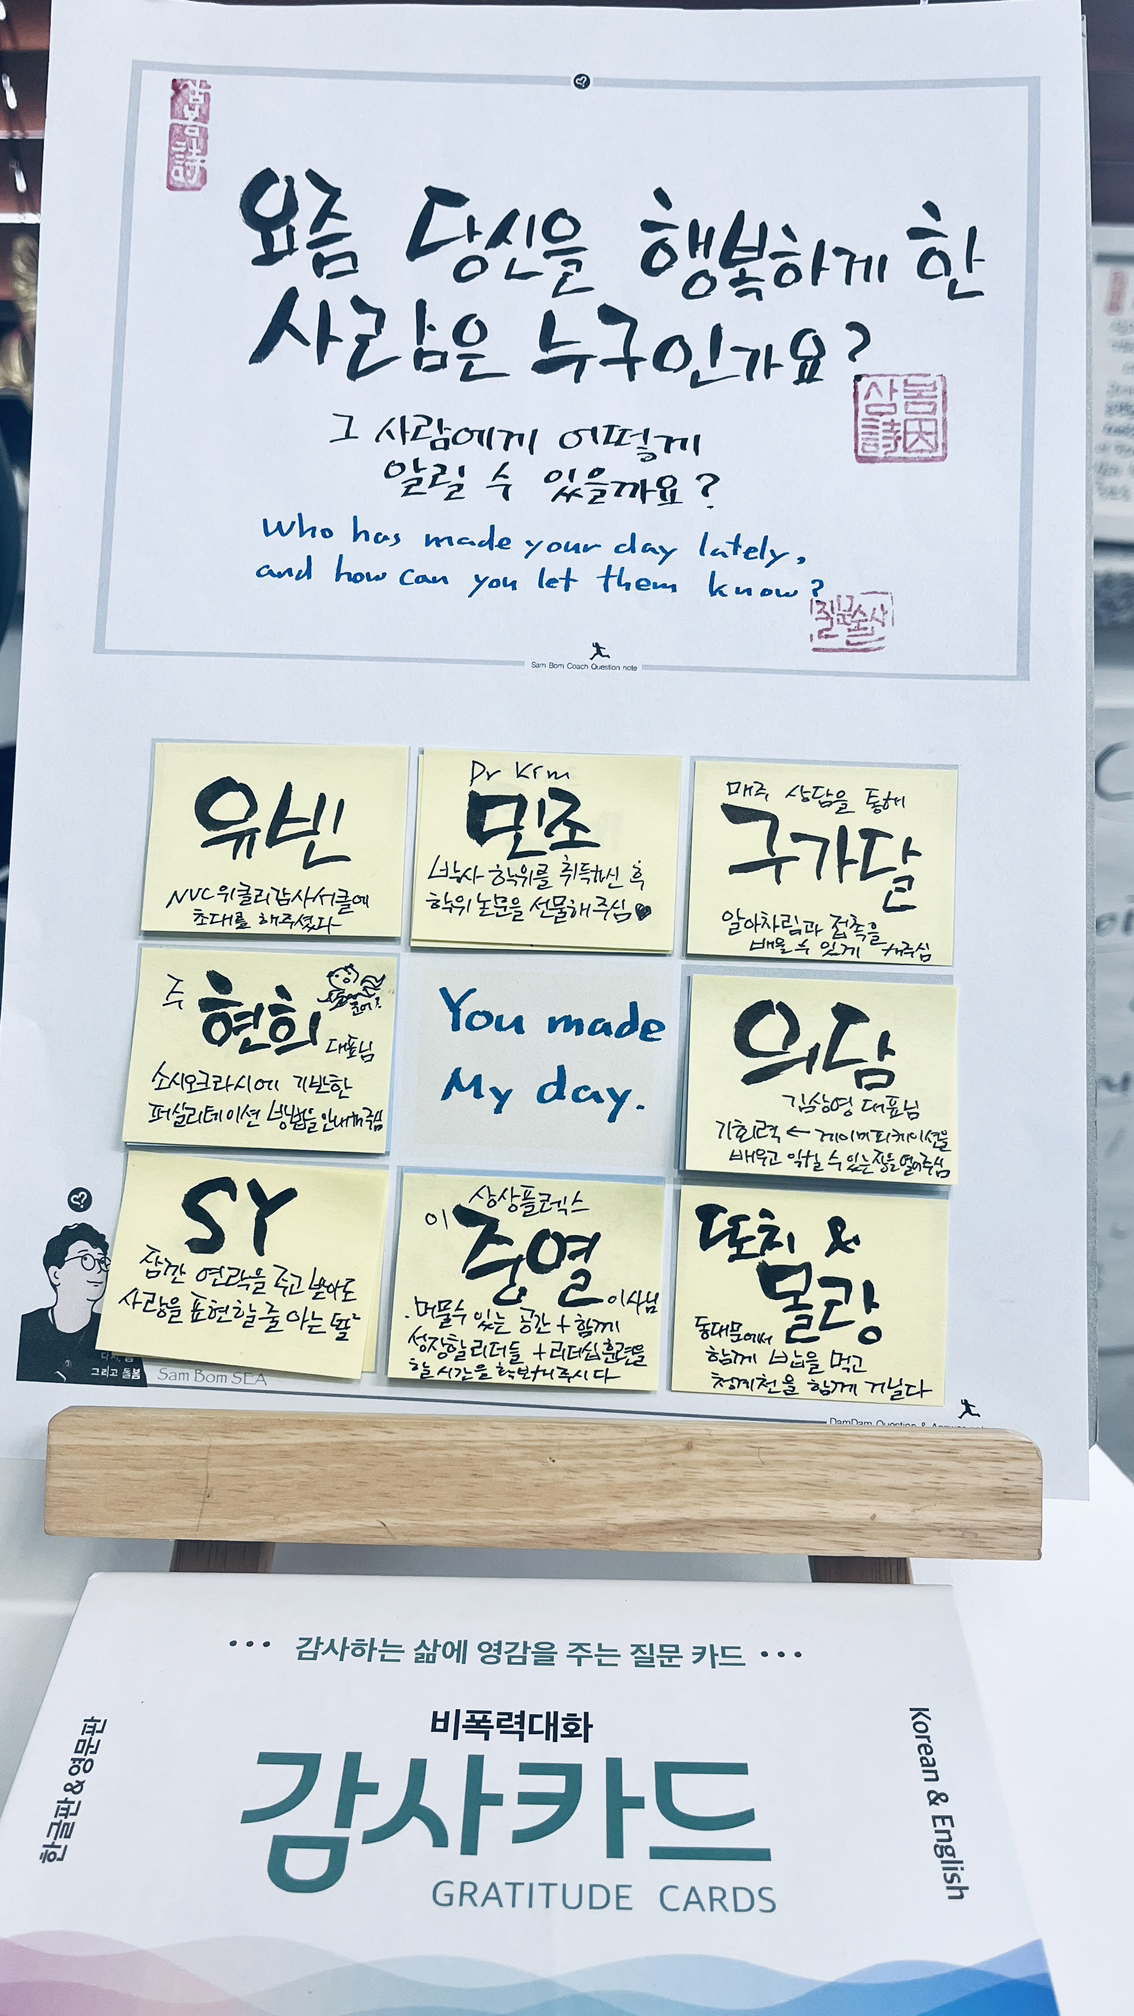 삼봄詩
요즘 당신을 행복하게 한
사람은 누구인가요?
삼봄
詩因
그 사람에게 어떻게
알릴 수 있을까요?
Who has made your day lately,
and how can you let them know?
질문술사
Sam Bom Coach Question note
유빈
NVC 위클리감사서클에
초대를 해주셨다
Dr Kim
민조
박사 학위를 취득하신 후
학위 논문을 선물해주심
매주 상담을 통해
구가달
알아차림과 접촉을
배울 수 있게 해주심
주 현희 대표님
소시오크라시에 기반한
퍼실리테이션 방법을 안내해주심
You made
My day.
의담
김상영 대표님
기획력 ← 게이미피케이션을
배우고 익힐 수 있는 장을 열어주심
SY
잠깐 연락을 주고 받아도
사랑을 표현할 줄 아는 딸
상상플렉스
이 중열 이사님
머물수 있는 공간 + 함께
성장할 리더들 + 리더십 훈련을
할 시간을 확보해주시다
또치 &
몰랑
동대문에서
함께 밥을 먹고
청계천을 함께 거닐다
그리고 돌봄
Sam Bom SEA
DamDam Question &
감사하는 삶에 영감을 주는 질문 카드
비폭력대화
감사카드
GRATITUDE CARDS
한글판&영문판
Korean & English